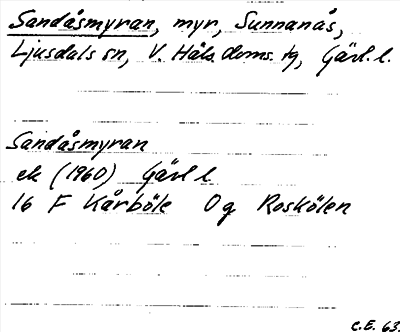 Sandåsmyran, myr, Sunnanås,
Ljusdals sn, V. Häls. doms. tg, Gävl. l.
Sandåsmyran
ek (1960) Gävl l.
16 F Kårböle 0 g Roskölen
C.E. 63.